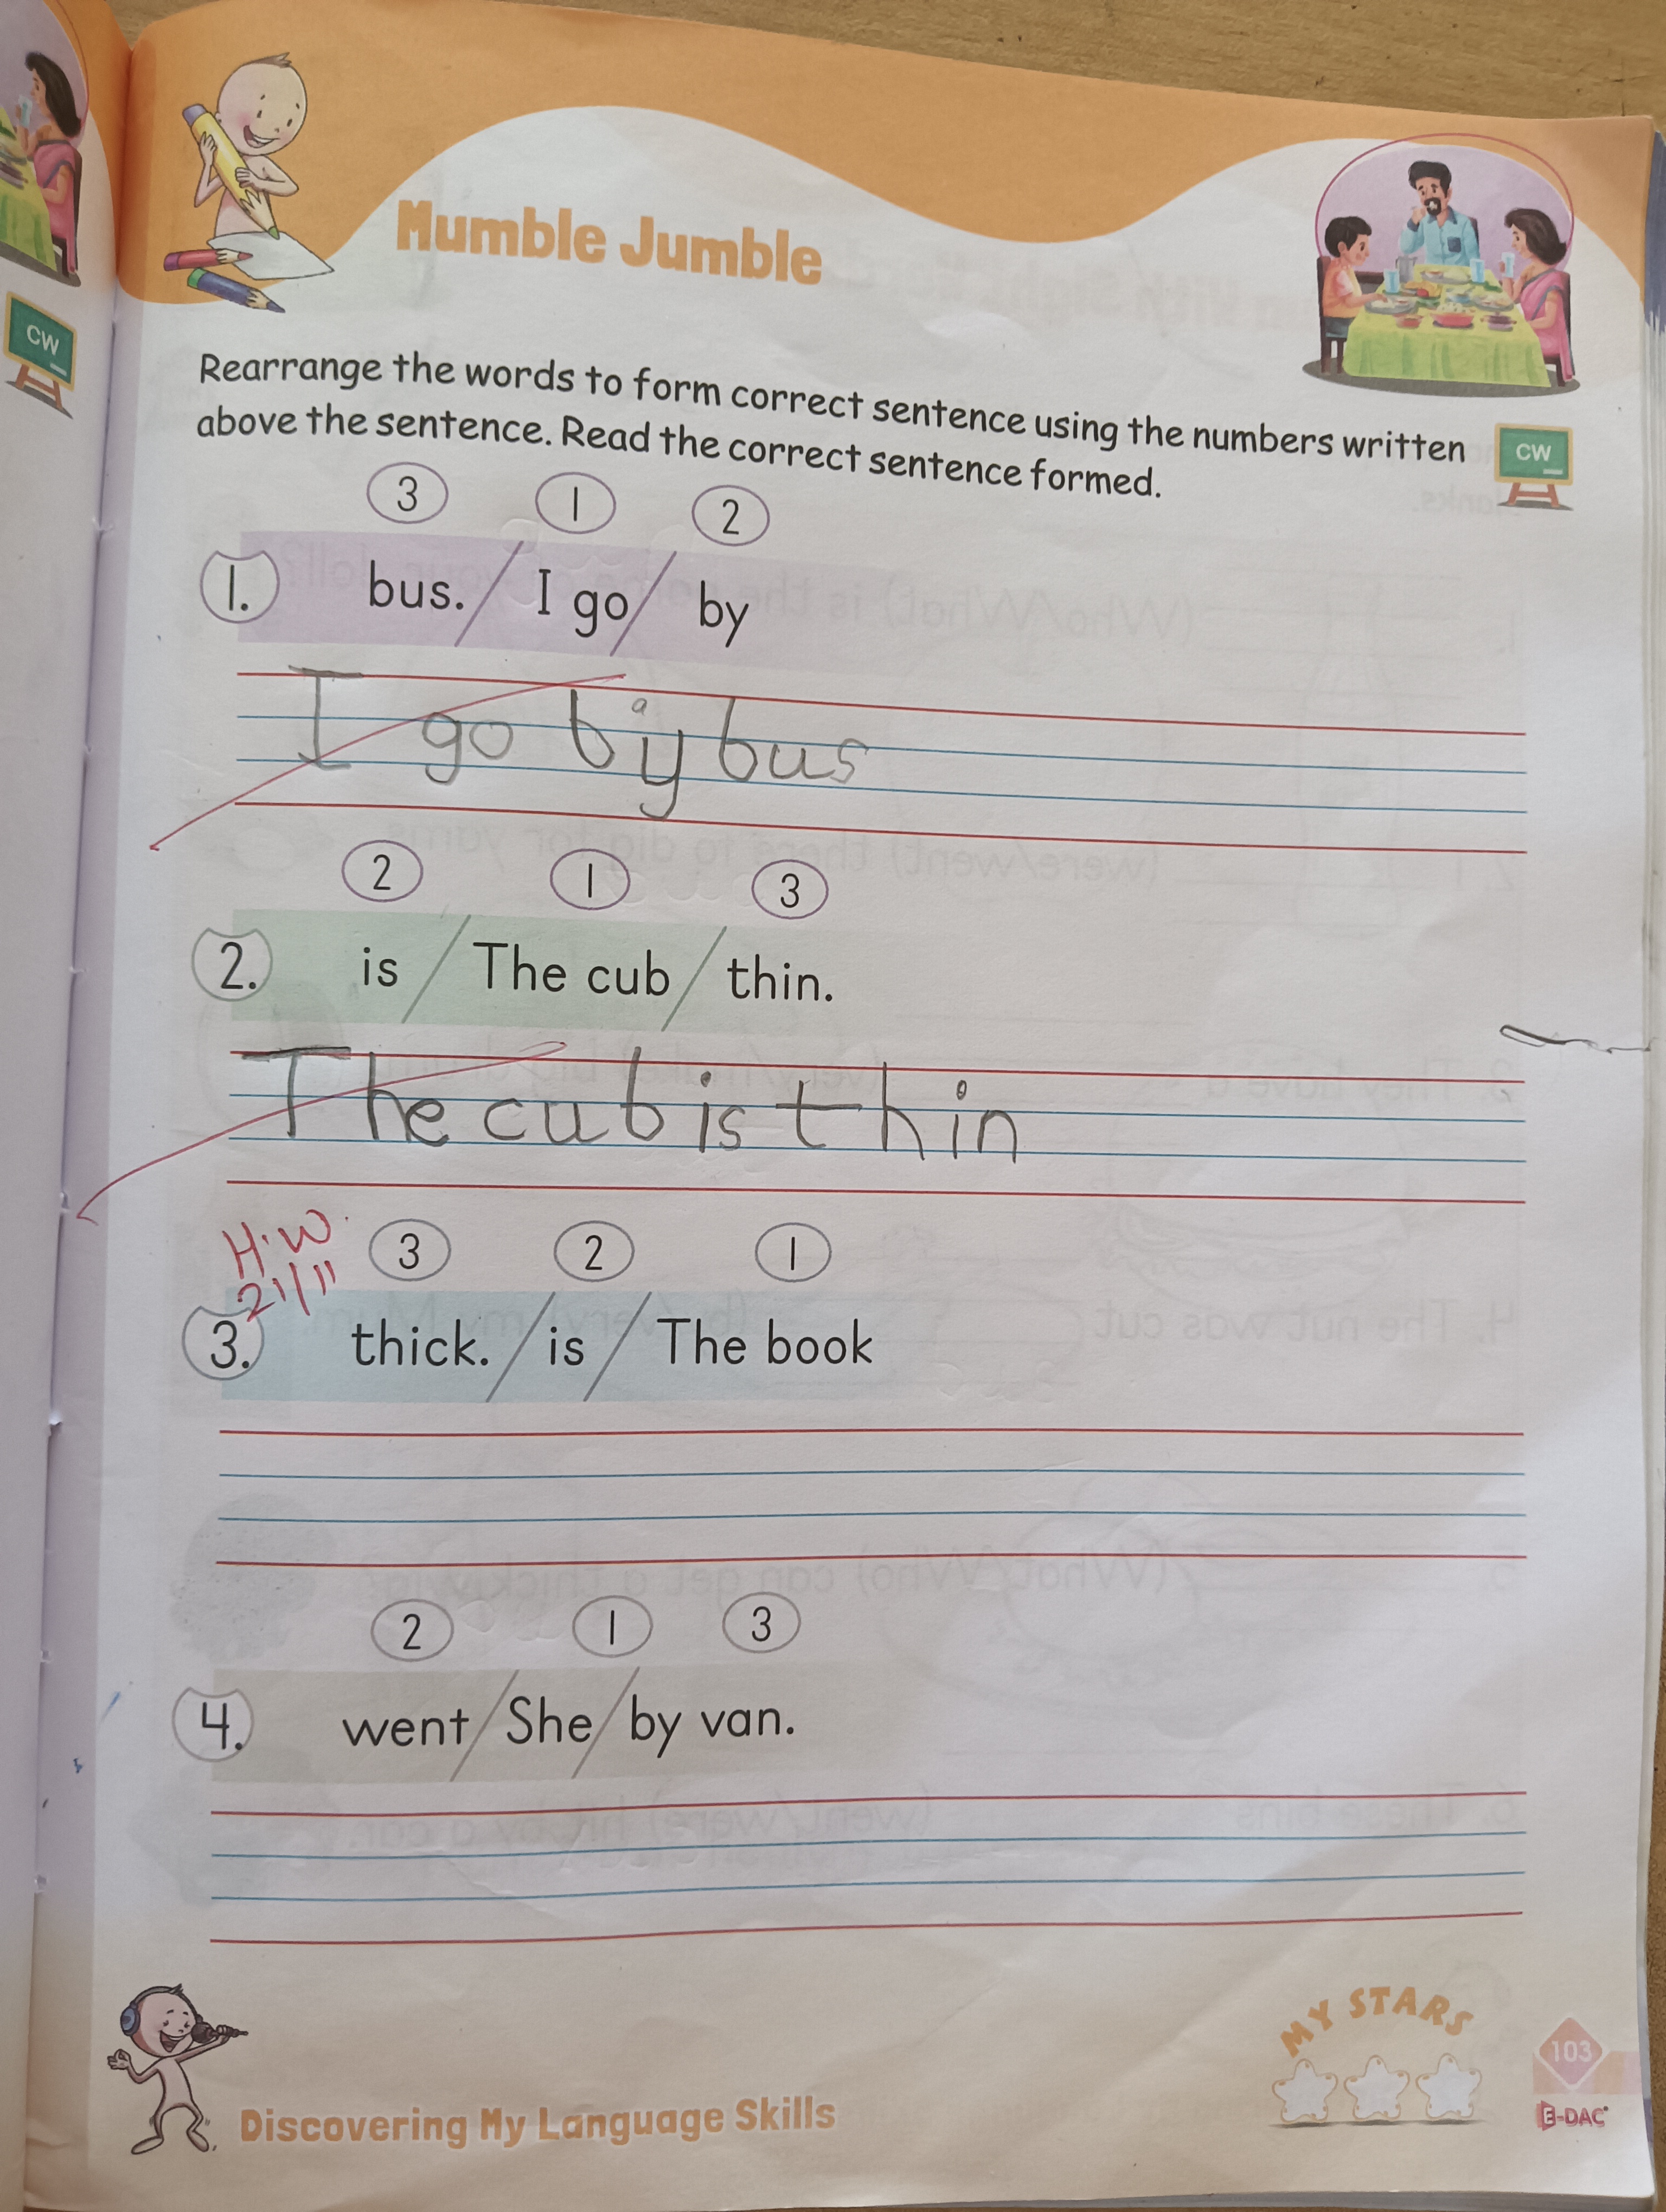 Mumble Jumble
CW
Rearrange the words to form correct sentence using the numbers written
above the sentence. Read the correct sentence formed.
CW
3 1 2
1. bus. / I go / by
I go by bus
2 1 3
2. is / The cub / thin.
The cub is thin
H.W.
21/11
3 2 1
3. thick. / is / The book
2 1 3
4. went / She / by van.
MY STARS
103
E-DAC
Discovering My Language Skills